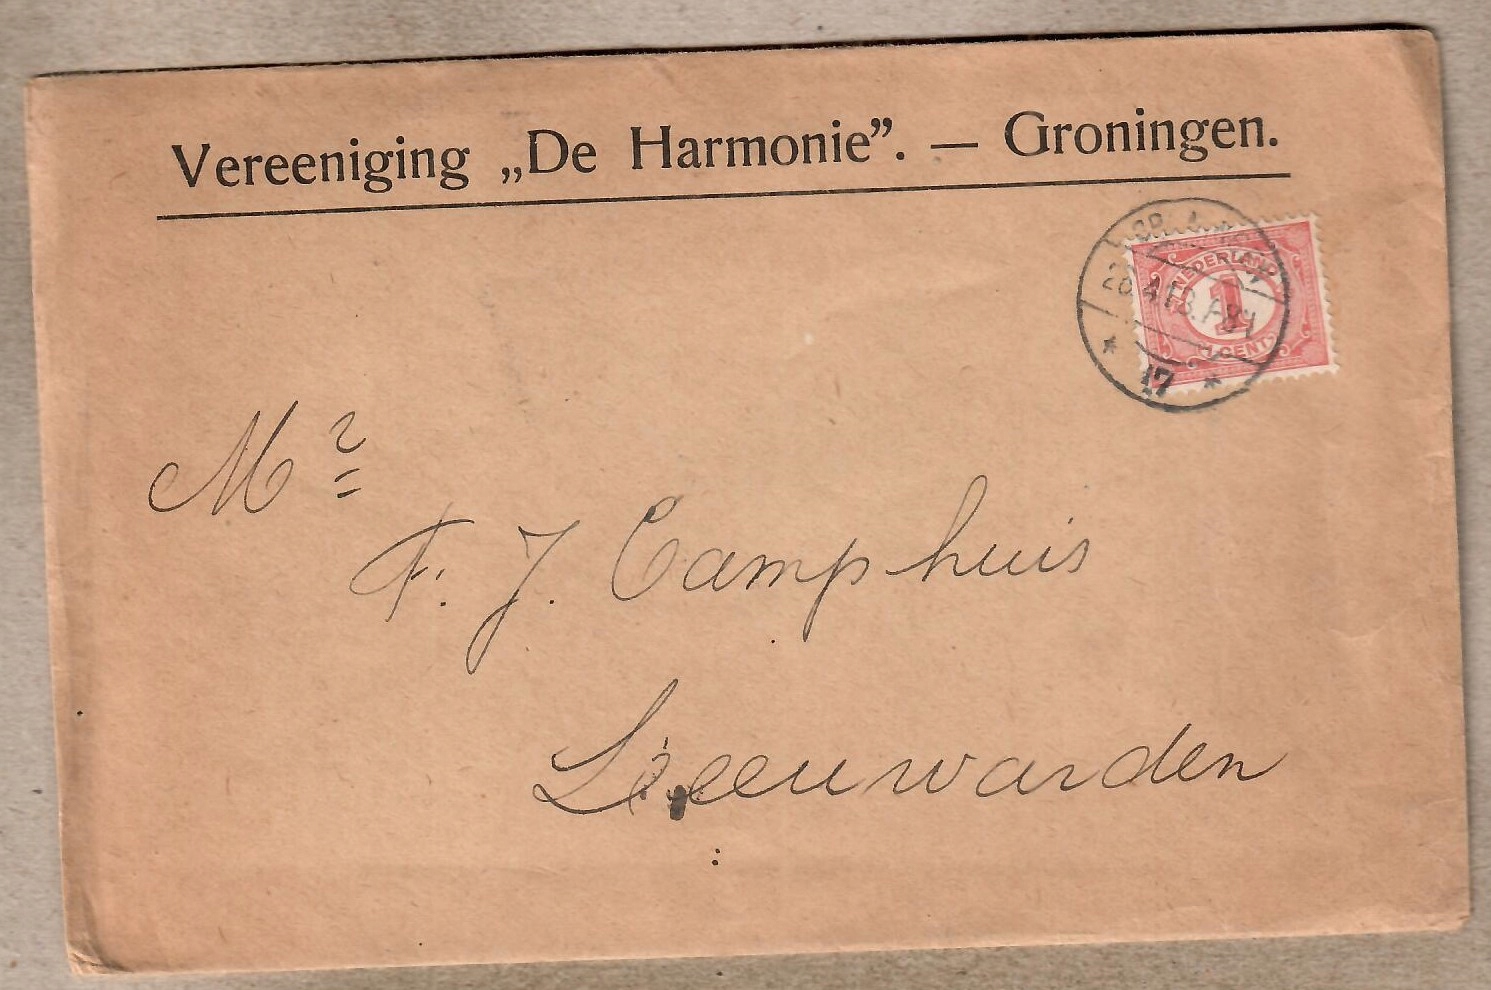 Vereeniging „De Harmonie”. — Groningen.
NEDERLAND
1
1 CENT
17
Mr
F. J. Camphuis
Leeuwarden